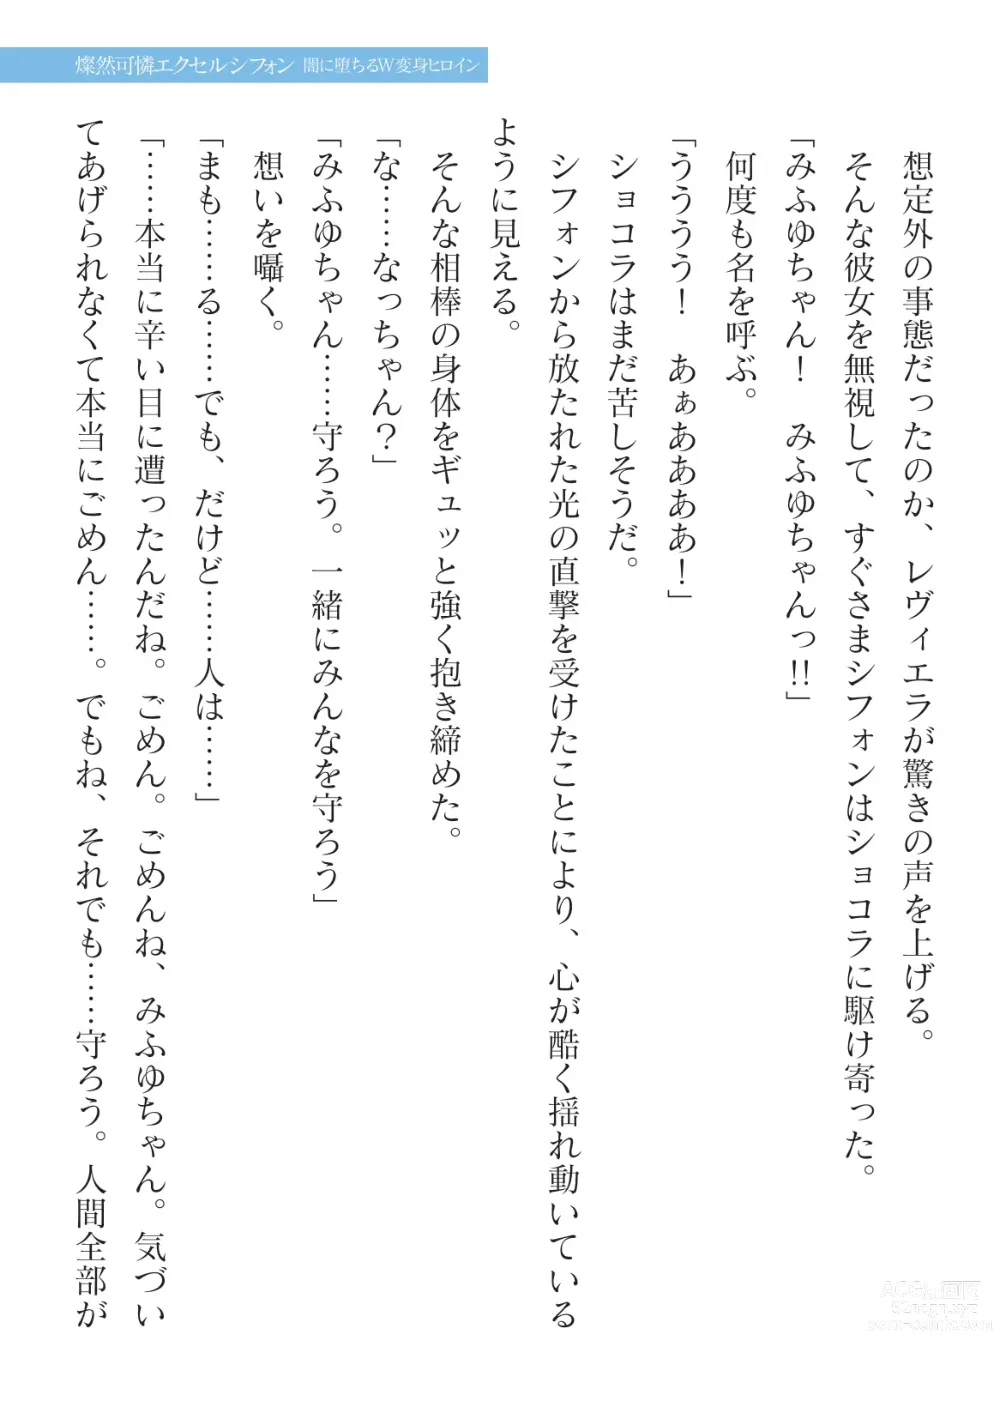 燦然可憐エクセルシフォン 闇に堕ちるW変身ヒロイン
想定外の事態だったのか、レヴィエラが驚きの声を上げる。
そんな彼女を無視して、すぐさまシフォンはショコラに駆け寄った。
「みふゆちゃん！ みふゆちゃんっ!!」
何度も名を呼ぶ。
「うううう！ あぁああああ！」
ショコラはまだ苦しそうだ。
シフォンから放たれた光の直撃を受けたことにより、心が酷く揺れ動いている
ように見える。
そんな相棒の身体をギュッと強く抱き締めた。
「な……なっちゃん？」
「みふゆちゃん……守ろう。一緒にみんなを守ろう」
想いを囁く。
「まも……る……でも、だけど……人は……」
「……本当に辛い目に遭ったんだね。ごめん。ごめんね、みふゆちゃん。気づい
てあげられなくて本当にごめん……。でもね、それでも……守ろう。人間全部が